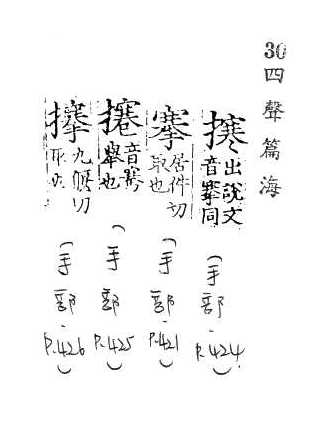 30 四聲篇海
出說文
音搴同
(手部-P.424)
搴
居件切
取也
(手部-P.421)
音騫
舉也
(手部-P.425)
九切
取也
(手部-P.426)